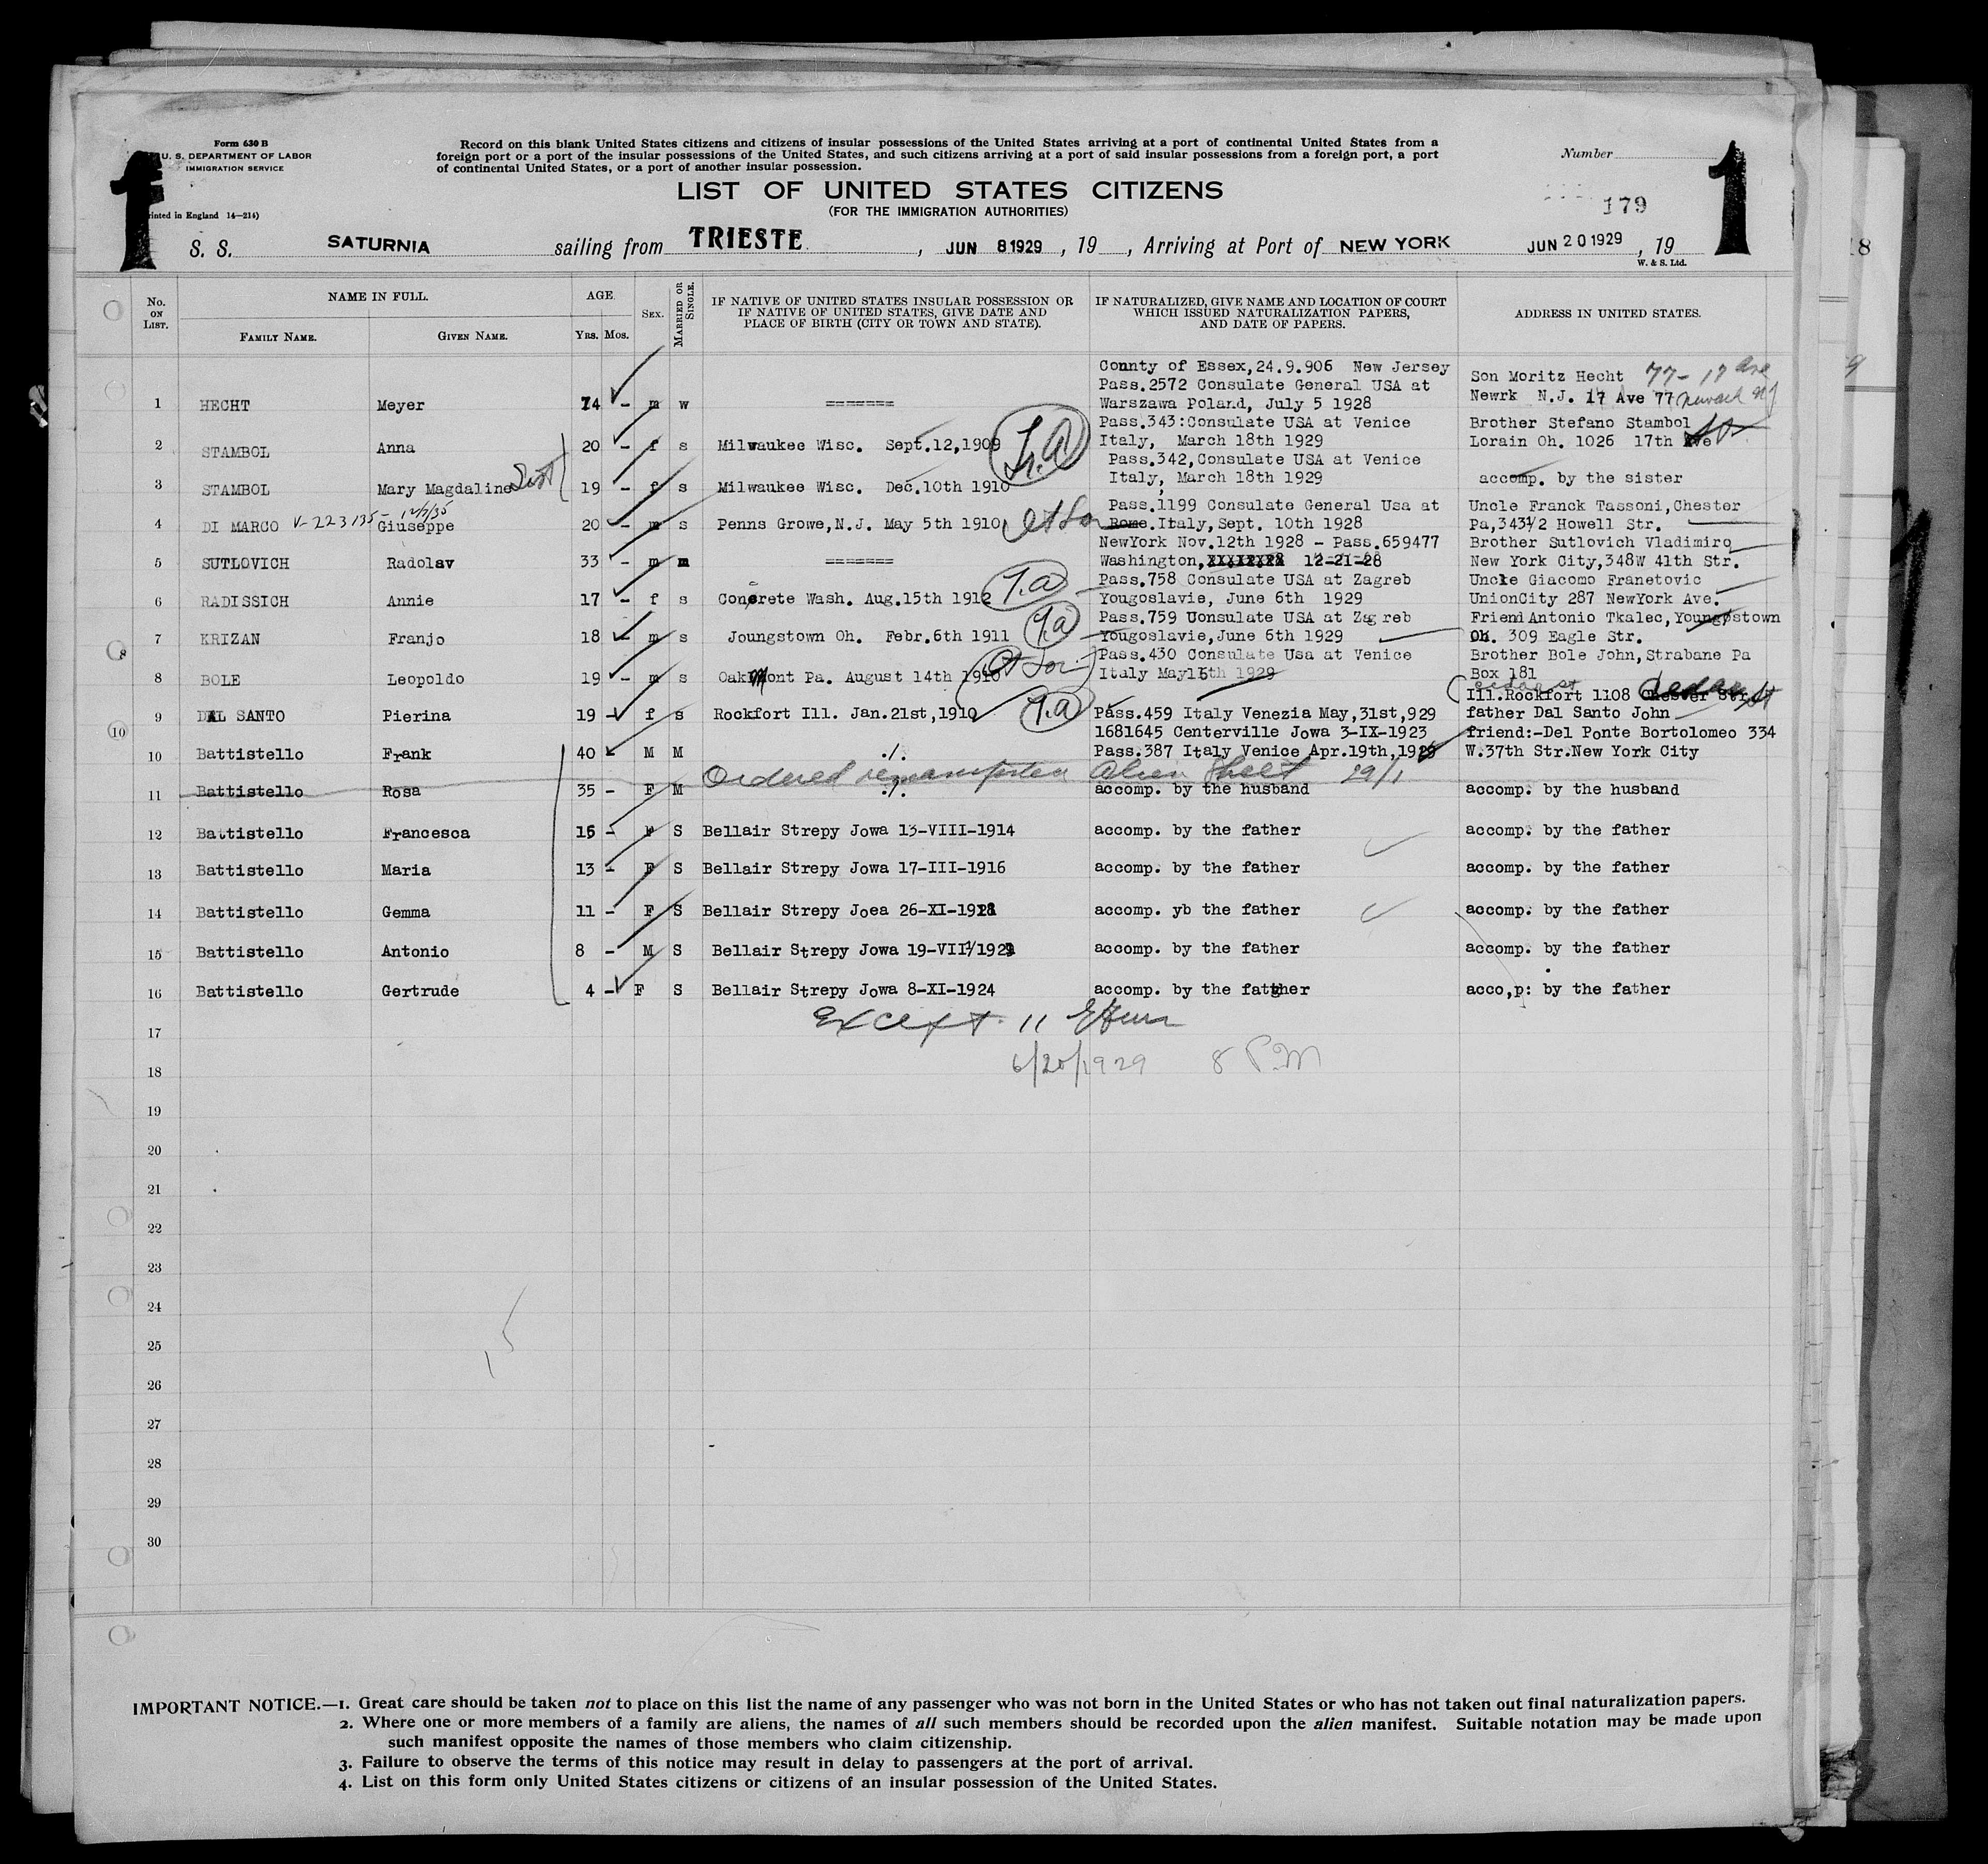 Form 630 B
U. S. DEPARTMENT OF LABOR
IMMIGRATION SERVICE
Record on this blank United States citizens and citizens of insular possessions of the United States arriving at a port of continental United States from a
foreign port or a port of the insular possessions of the United States, and such citizens arriving at a port of said insular possessions from a foreign port, a port
of continental United States, or a port of another insular possession.
Number
1
1
LIST OF UNITED STATES CITIZENS
(FOR THE IMMIGRATION AUTHORITIES)
179
rinted in England 14—214)
S. S. SATURNIA sailing from TRIESTE , JUN 8 1929 , 19 , Arriving at Port of NEW YORK JUN 20 1929 , 19
W. & S. Ltd.
18
No. ON LIST.
NAME IN FULL.
FAMILY NAME. GIVEN NAME.
AGE.
YRS. MOS.
SEX.
MARRIED OR SINGLE.
IF NATIVE OF UNITED STATES INSULAR POSSESSION OR
IF NATIVE OF UNITED STATES, GIVE DATE AND
PLACE OF BIRTH (CITY OR TOWN AND STATE).
IF NATURALIZED, GIVE NAME AND LOCATION OF COURT
WHICH ISSUED NATURALIZATION PAPERS,
AND DATE OF PAPERS.
ADDRESS IN UNITED STATES.
County of Essex,24.9.906 New Jersey
Pass.2572 Consulate General USA at Son Moritz Hecht 77 - 17 Ave
1 HECHT Meyer 74 - m w ======= Warszawa Poland, July 5 1928 Newrk N.J. 17 Ave 77 Newark NJ
Pass.343:Consulate USA at Venice Brother Stefano Stambol
2 STAMBOL Anna 20 - f s Milwaukee Wisc. Sept.12,1909 Italy, March 18th 1929 Lorain Oh. 1026 17th Ave
Pass.342,Consulate USA at Venice
3 STAMBOL Mary Magdaline 19 - f s Milwaukee Wisc. Dec.10th 1910 Italy, March 18th 1929 accomp. by the sister
V-223135 - 12/7/35 Pass.1199 Consulate General Usa at Uncle Franck Tassoni,Chester
4 DI MARCO Giuseppe 20 - m s Penns Growe,N.J. May 5th 1910 Rome.Italy,Sept. 10th 1928 Pa,3431/2 Howell Str.
NewYork Nov.12th 1928 - Pass.659477 Brother Sutlovich Vladimiro
5 SUTLOVICH Radolav 33 - m m ======= Washington, 12-21-28 New York City,348W 41th Str.
Pass.758 Consulate USA at Zagreb Uncle Giacomo Franetovic
6 RADISSICH Annie 17 - f s Concrete Wash. Aug.15th 1912 Yougoslavie, June 6th 1929 UnionCity 287 NewYork Ave.
Pass.759 Uonsulate USA at Zagreb Friend Antonio Tkalec,Youngostown
7 KRIZAN Franjo 18 - m s Joungstown Oh. Febr.6th 1911 Yougoslavie,June 6th 1929 Oh. 309 Eagle Str.
Pass.430 Consulate Usa at Venice Brother Bole John,Strabane Pa
8 BOLE Leopoldo 19 - m s Oakmont Pa. August 14th 1910 Italy May15th 1929 Box 181
Ill.Rockfort 1108 Chester Str.
9 DAL SANTO Pierina 19 - f s Rockfort Ill. Jan.21st,1910 Pass.459 Italy Venezia May,31st,929 father Dal Santo John
1681645 Centerville Jowa 3-IX-1923 friend:-Del Ponte Bortolomeo 334
10 Battistello Frank 40 M M ./. Pass.387 Italy Venice Apr.19th,1928 W.37th Str.New York City
Ordered Alien Sheet 29/1
11 Battistello Rosa 35 - F M ./. accomp. by the husband accomp. by the husband
12 Battistello Francesca 15 - F S Bellair Strepy Jowa 13-VIII-1914 accomp. by the father accomp. by the father
13 Battistello Maria 13 - F S Bellair Strepy Jowa 17-III-1916 accomp. by the father accomp. by the father
14 Battistello Gemma 11 - F S Bellair Strepy Joea 26-XI-1918 accomp. yb the father accomp. by the father
15 Battistello Antonio 8 - M S Bellair Strepy Jowa 19-VII/1921 accomp. by the father accomp. by the father
16 Battistello Gertrude 4 - F S Bellair Strepy Jowa 8-XI-1924 accomp. by the fatther acco,p: by the father
Except 11
17
6/20/1929 8 PM
18
19
20
21
22
23
24
25
26
27
28
29
30
IMPORTANT NOTICE.—1. Great care should be taken not to place on this list the name of any passenger who was not born in the United States or who has not taken out final naturalization papers.
2. Where one or more members of a family are aliens, the names of all such members should be recorded upon the alien manifest. Suitable notation may be made upon
such manifest opposite the names of those members who claim citizenship.
3. Failure to observe the terms of this notice may result in delay to passengers at the port of arrival.
4. List on this form only United States citizens or citizens of an insular possession of the United States.